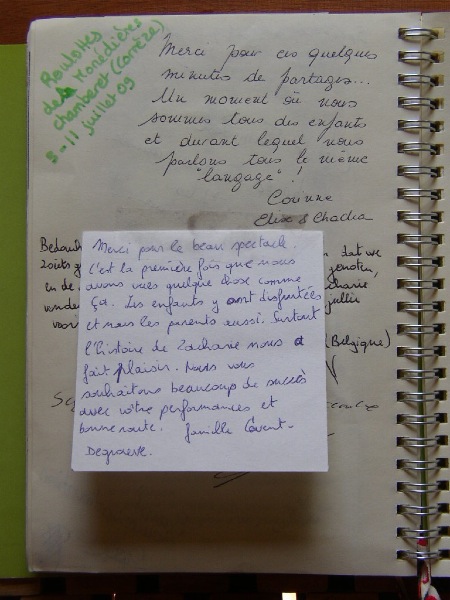 Roulottes
de Monédières
chamberet (Corrèze)
8-11 juillet 09
Merci pour ces quelques
minutes de partages...
Un moment où nous
sommes tous des enfants
et durant lequel nous
parlons tous le même
"langage" !
Corinne
Elise & Chadia
Merci pour le beau spectacle.
C'est la première fois que nous
avons vues quelque chose comme
ça. Les enfants y ont
et nous les parents aussi. Surtout
l'histoire de Zacharie nous a
fait plaisir. Nous vous
souhaitons beaucoup de succès
avec vôtre performances et
bonne route. famille
dat we
(Belgique)